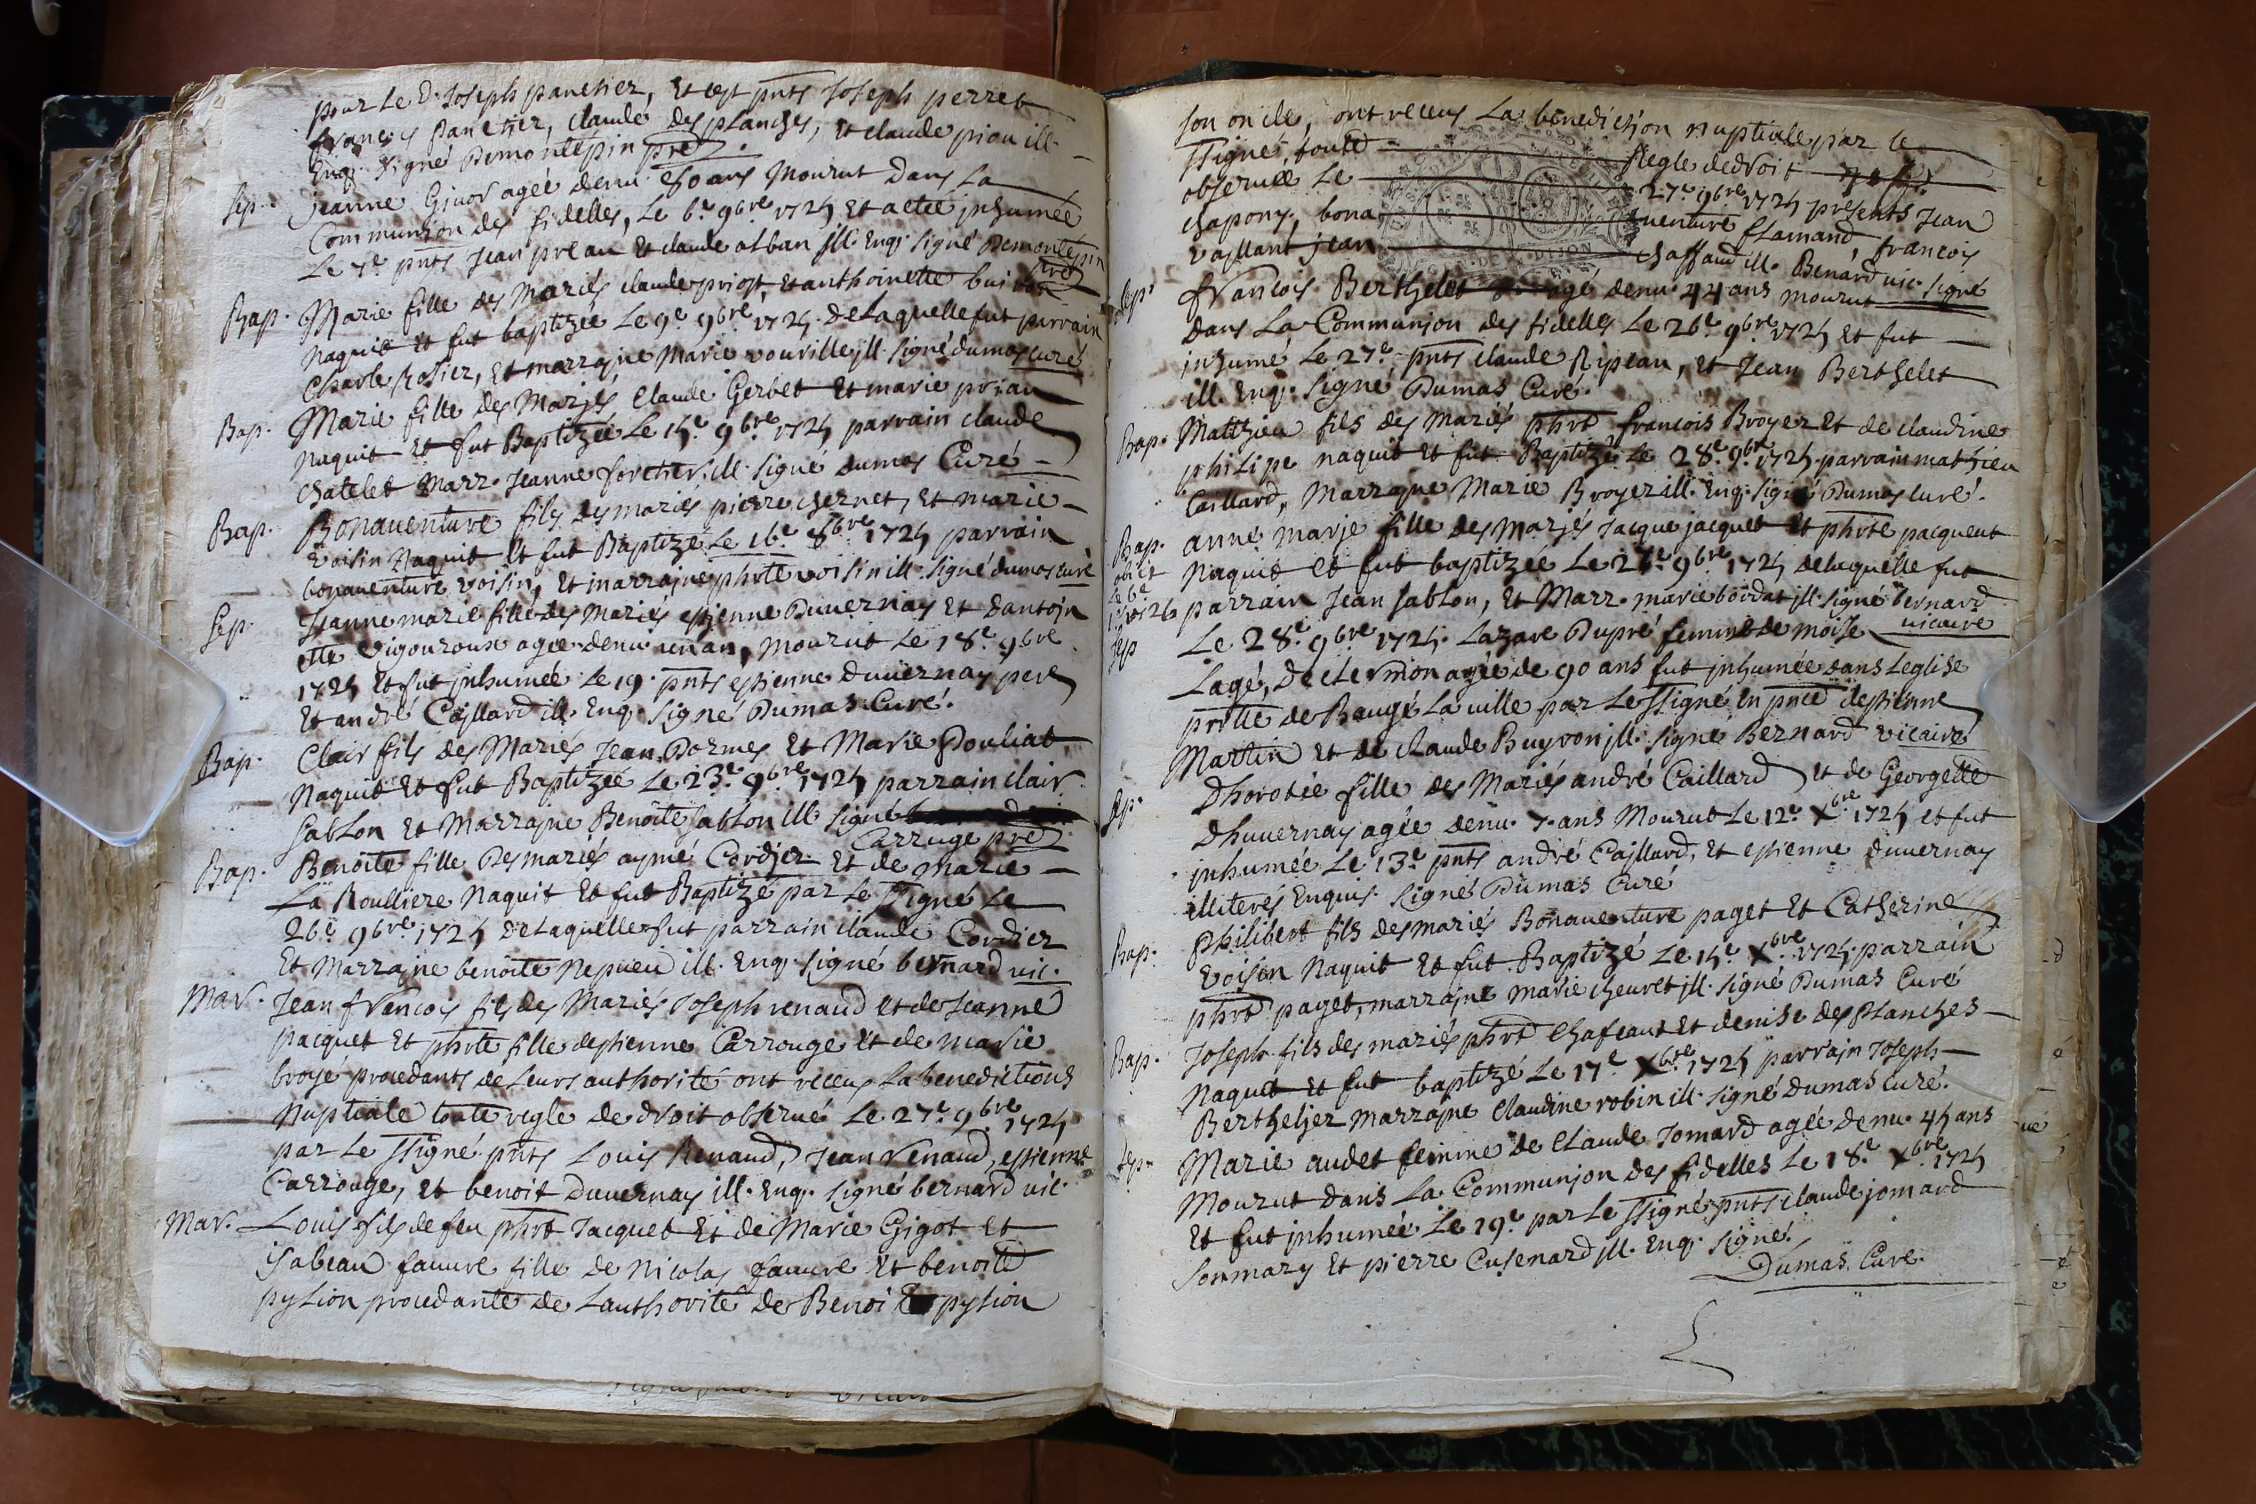 pour le d. Joseph panetier, Et cept pnts Joseph perret
francois Panetier, Claude des planches, et claude piou ill.
Enq. signé Demontépin pre
Sep. Jeanne Givor ageé denv. 80 ans Mourut Dans La
Communion des fidelles, Le 6.e 9bre 1724 Et a eteé inhumeé
Le 7e pnts Jean preau Et claude alban ill. Enq. signé Demontépin
pre
Bap. Marie fille des Mariés claude priost, Et anthoinette buiron
Naquit Et fut baptizeé Le 9e 9bre 1724. de Laquelle fut parrain
Charle Rosier, Et marrajne Marie vouville jll. signé dumas curé
Bap. Marie fille des Marjés Claude Gerbet Et marie priau
Naquit Et fut Baptizeé Le 14e 9bre 1724 parrain claude
chatelet Marr. Jeanne foretier. ill. signé Dumas Curé
Bap. Bonaventure fils des mariés pierre chernet, Et marie
voisin Naquit Et fut Baptizé Le 16e 8bre 1724 parrain
bonaventure voisin, Et marrajne phrte voisin ill. signé dumas curé
Sep. Jeanne marie fille des Mariés estienne Duvernay Et Dantojn
ette Vigouroux ageé denv. un an, Mourut Le 18e 9bre
1724 Et fut inhumeé Le 19. pnts estienne Duvernay pere
Et andré Cajllard ill. Enq. signé Dumas Curé.
Bap. Clair fils des Mariés Jean Dormes Et Marie Pouliat
Naquit Et fut Baptizeé Le 23e 9bre 1724 parrain clair
sablon Et Marrajne Benoite sablon ill. signé
Carruge pre
Bap. Benoite fille Des mariés aymé Cordjer Et de marie
La Roulliere Naquit Et fut Baptizé par Le ssigné Le
26e 9bre 1724 De Laquelle fut parrain claude Cordier
Et Marrajne benoite Nepueu ill. Enq. signé bernard vic.
Mar. Jean francois fils des Mariés Joseph renaud Et de Jeanne
pacquet Et phrte fille destienne Carrouge Et de marie
broyé procedants de Leurs authorité ont receus La benedictions
Nuptiale toute regle de droit observé Le 27e 9bre 1724
par Le ssigné pnts Louis Renaud, Jean renaud, estienne
Carrouge, Et benoit Duvernay ill. Enq. signé bernard vic.
Mar. Louis fils de feu phrt Jacquet Et de Marie Gigot Et
isabeau fauvre fille de Nicolas fauvre Et benoite
pytion procedante de Lauthorité de Benoi pytion
son oncle, ont receus La benediction nuptiale par le
ssigné, toute regle de droit
observeé Le 27e 9bre 1724 presents Jean
chapony, bonaventure flamand francois
vajllant jean chaffaud ill. Benard vic. signé
sep. francois Berthelet agé denv. 44 ans mourut
dans La Communion des fidelles Le 26e 9bre 1724 Et fut
inhumé Le 27e pnts Claude Ripeau, Et Jean Berthelet
ill. Enq. signé Dumas Curé.
Bap. Matthieu fils des Mariés phrt francois Broyer Et de claudine
philipe naquit Et fut Baptizé Le 28e 9bre 1724. parrain mathieu
Caillard, Marrajne Marie Broyer ill. Enq. signé Dumas curé.
Bap. anne marje fille des Marjés Jacque jacquet Et phrte pacquent
Naquit Et fut baptizeé Le 26e 9bre 1724 de laquelle fut
parrain Jean sablon, Et Marr. marie bordat jll. signé bernard
vicaire
sep Le 28e 9bre 1724. Lazare Dupré femme de moise
Lagé, ageé de 90 ans fut inhumeé dans Leglise
prlle de Baugé La ville par Le ssigné En pnce destienne
Martin Et de claude Buyron jll. signé Bernard vicaire
Sep. Dhorotéé fille des Mariés andré Caillard Et de Georgette
Dhuvernay ageé denv. 7. ans Mourut Le 12e Xbre 1724 et fut
inhumeé Le 13e pnts andré Cajllard, Et estienne Duvernay
illiterés Enquis. signé Dumas Curé
Bap. Philibert fils des mariés Bonaventure paget Et Catherine
voisin Naquit Et fut Baptizé Le 14e Xbre 1724. parrain
phrt paget, marrajne marie cheuret jll. signé Dumas Curé
Bap. Joseph fils des mariés phrt Chafeaut Et denise des Planches
Naquit Et fut baptizé Le 17e Xbre 1724 parrajn Joseph
Bertheljer Marrajne Claudine robin ill. signé Dumas Curé.
Sep. Marie audet femme de Claude Jomard ageé denv. 44 ans
Mourut dans La Communion des fidelles Le 18e Xbre 1724
Et fut inhumeé Le 19e par Le ssigné pnts claude jomard
son mary Et pierre Cusenard jll. Enq. signé.
Dumas Curé.